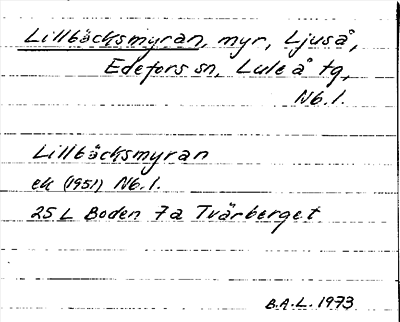 Lillbäcksmyran, myr, Ljuså,
Edefors sn, Luleå tg,
Nb. l.
Lillbäcksmyran
ek (1951) Nb. l.
25 L Boden 7a Tvärberget
B.A.L. 1973